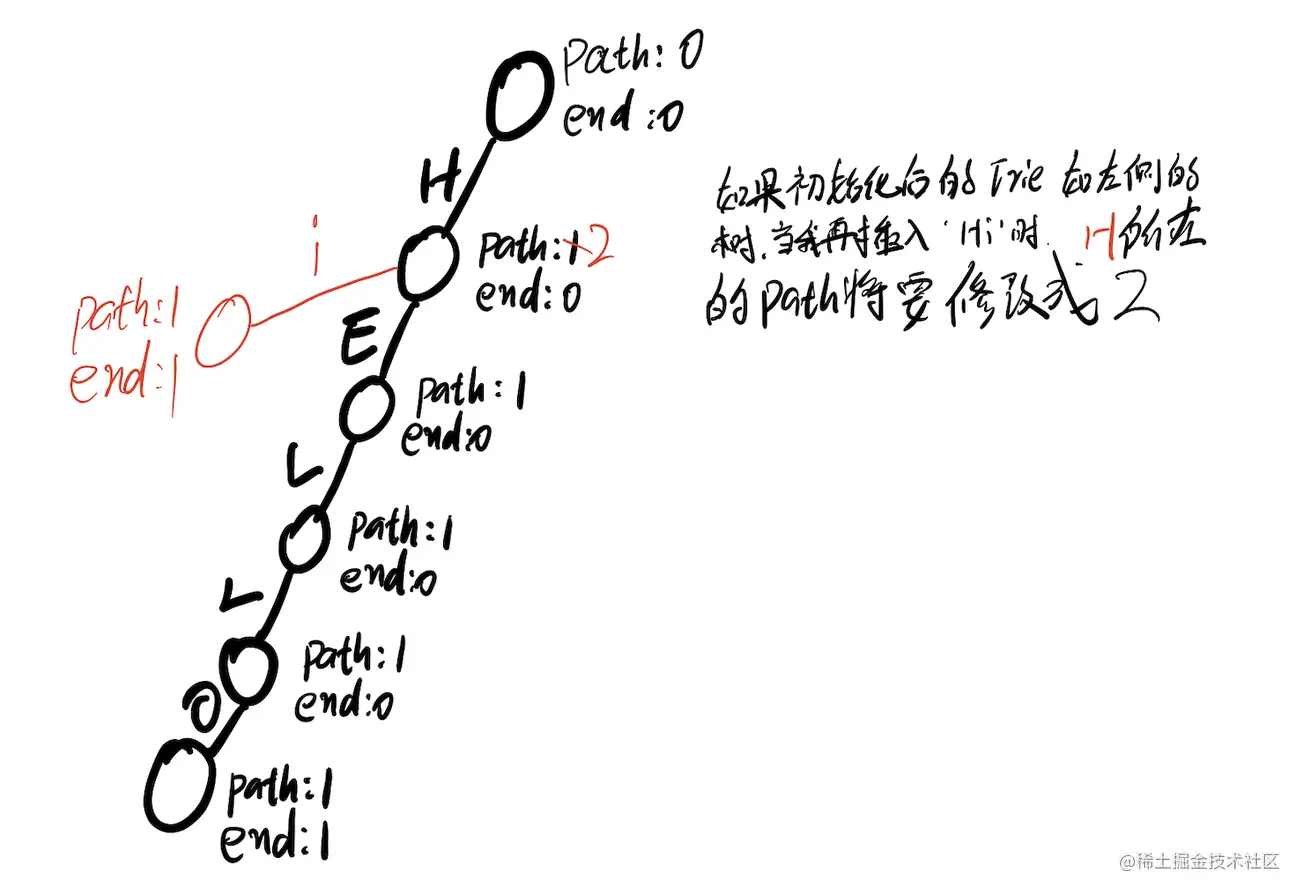 path: 0
end: 0
H
path: 1 2
end: 0
i
path: 1
end: 1
E
path: 1
end: 0
L
path: 1
end: 0
L
path: 1
end: 0
O
path: 1
end: 1
如果初始化后的 Trie 如左侧的
树,当我再插入'Hi'时, H所在
的path将要修改成 2
@稀土掘金技术社区